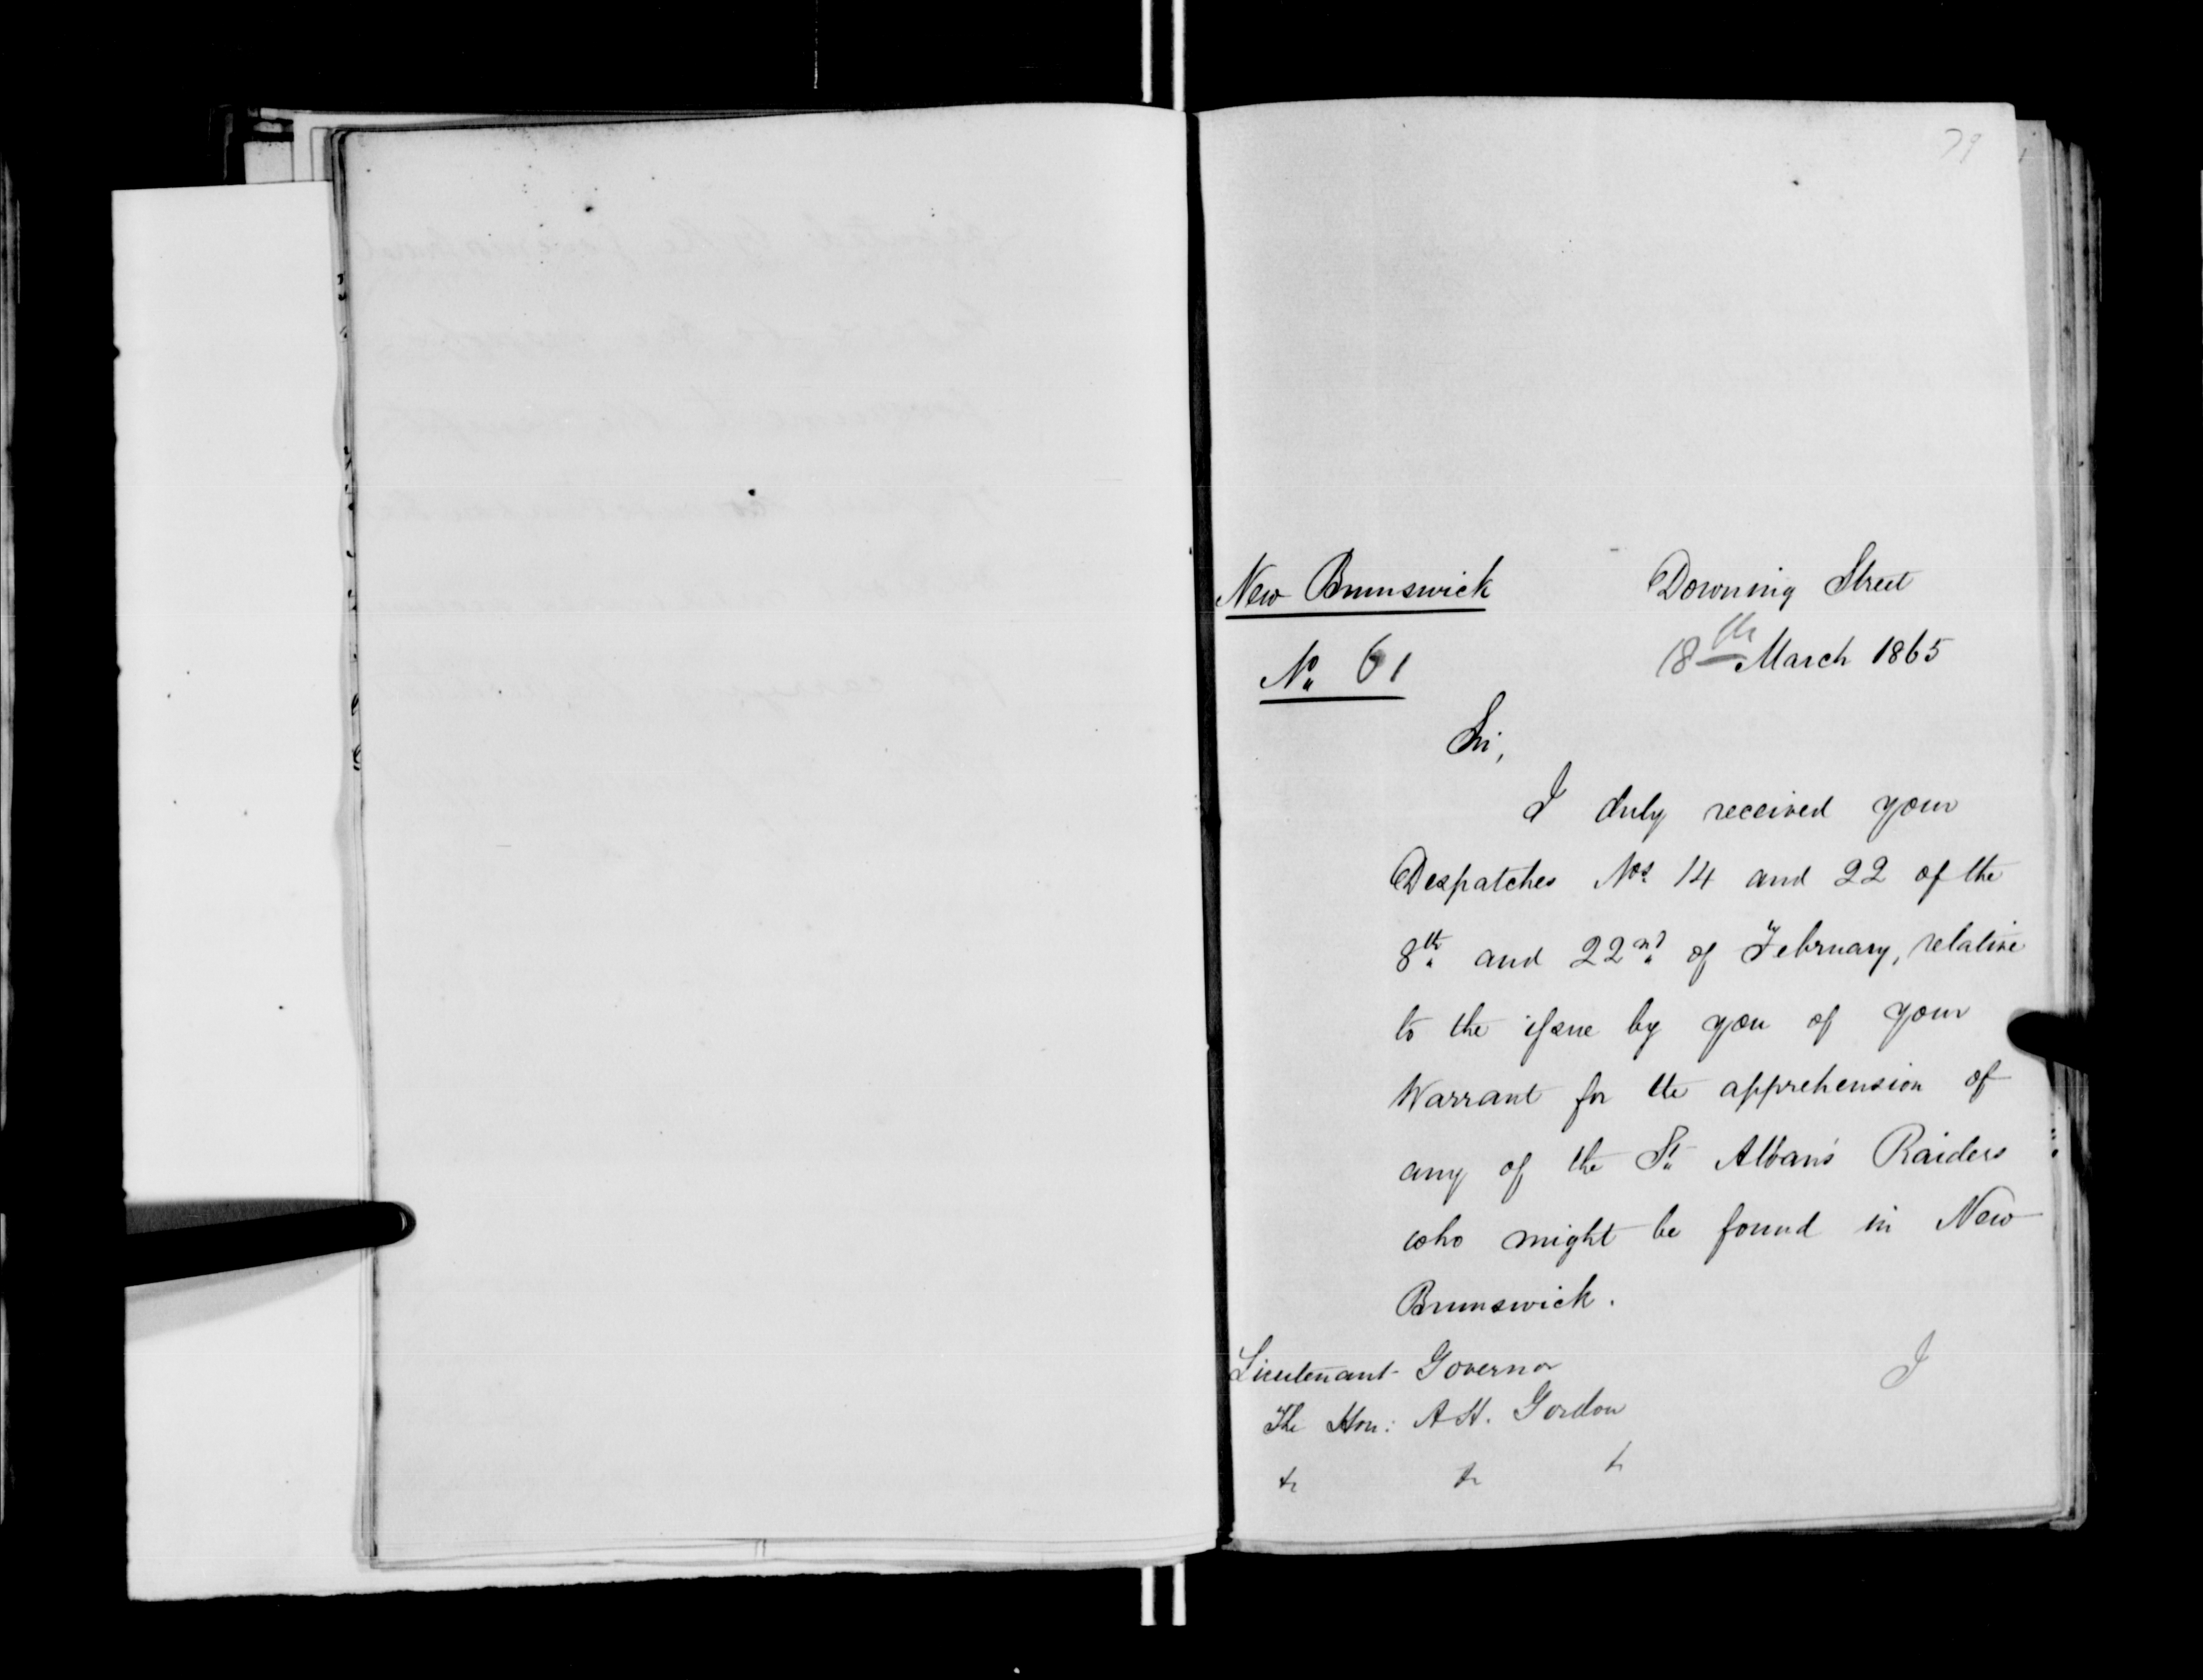 79
New Brunswick
Downing Street
No. 61
18th March 1865
Sir,
I duly received your
Despatches Nos. 14 and 22 of the
8th and 22nd of February, relative
to the issue by you of your
Warrant for the apprehension of
any of the St. Alban's Raiders
who might be found in New
Brunswick.
I
Lieutenant Governor
The Hon: A H. Gordon
&c &c &c